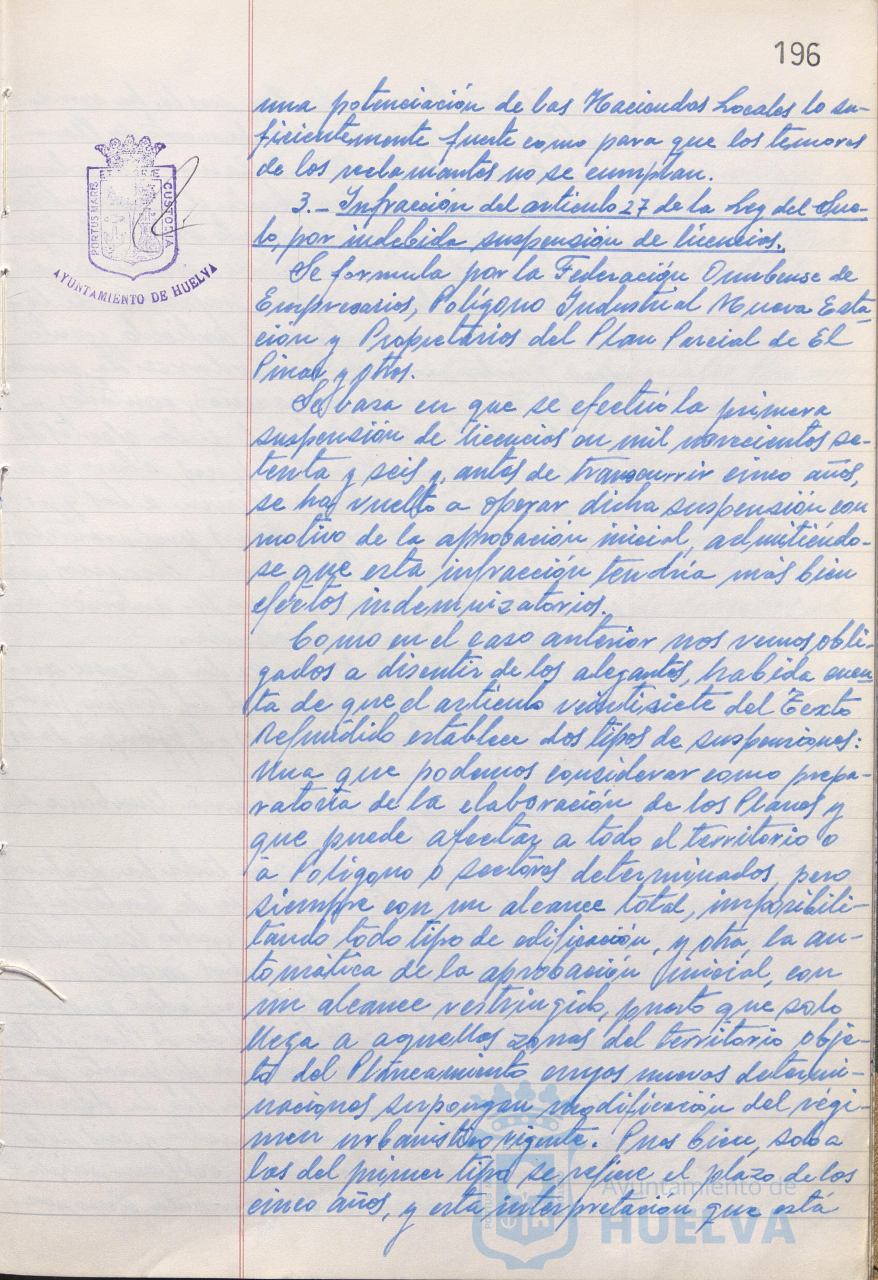 196
una potenciación de las Haciendas Locales lo su-
ficientemente fuerte como para que los temores
de los reclamantes no se cumplan.
3.- Infracción del articulo 27 de la Ley del Sue-
lo, por indebida suspensión de licencias.
Se formula por la Federación Onubense de
Empresarios, Polígono Industrial Nueva Esta-
ción y Propietarios del Plan Parcial de El
Pinar y otros.
Se basa en que se efectuó la primera
suspensión de licencias en mil novecientos se-
tenta y seis y, antes de transcurrir cinco años,
se ha vuelto a operar dicha suspensión con
motivo de la aprobación inicial, admitiéndo-
se que esta infracción tendría más bien
efectos indemnizatorios.
Como en el caso anterior nos vemos obli-
gados a disentir de los alegantes, habida cuen-
ta de que el articulo veintisiete del Texto
Refundido establece dos tipos de suspensiones:
Una que podemos considerar como prepa-
ratoria de la elaboración de los Planes y
que puede afectar a todo el territorio o
a Polígono o sectores determinados, pero
siempre con un alcance total, imposibili-
tando todo tipo de edificación, y otra, la au-
tomática de la aprobación inicial, con
un alcance restringido, puesto que solo
llega a aquellas zonas del territorio obje-
to del Planeamiento cuyas nuevas determi-
naciones supongan modificación del régi-
men urbanístico vigente. Pues bien, solo a
las del primer tipo se refiere el plazo de los
cinco años, y esta interpretación que está
PORTUS MARIS ET TERRAE CUSTODIA
AYUNTAMIENTO DE HUELVA
Ayuntamiento de
HUELVA